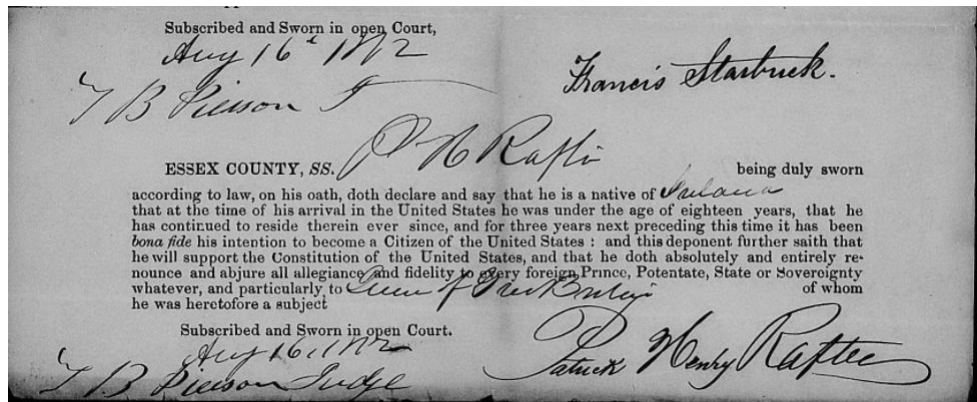 Subscribed and Sworn in open Court,
Aug 16th 1872
T B Pierson J
Francis Starbuck.
P H Rafti
ESSEX COUNTY, SS. being duly sworn
according to law, on his oath, doth declare and say that he is a native of Ireland
that at the time of his arrival in the United States he was under the age of eighteen years, that he
has continued to reside therein ever since, and for three years next preceding this time it has been
bona fide his intention to become a Citizen of the United States : and this deponent further saith that
he will support the Constitution of the United States, and that he doth absolutely and entirely re-
nounce and abjure all allegiance and fidelity to every foreign Prince, Potentate, State or Sovereignty
whatever, and particularly to Queen of Great Britain of whom
he was heretofore a subject
Subscribed and Sworn in open Court.
Aug 16, 1872
T B Pierson Judge
Patrick Henry Raftee